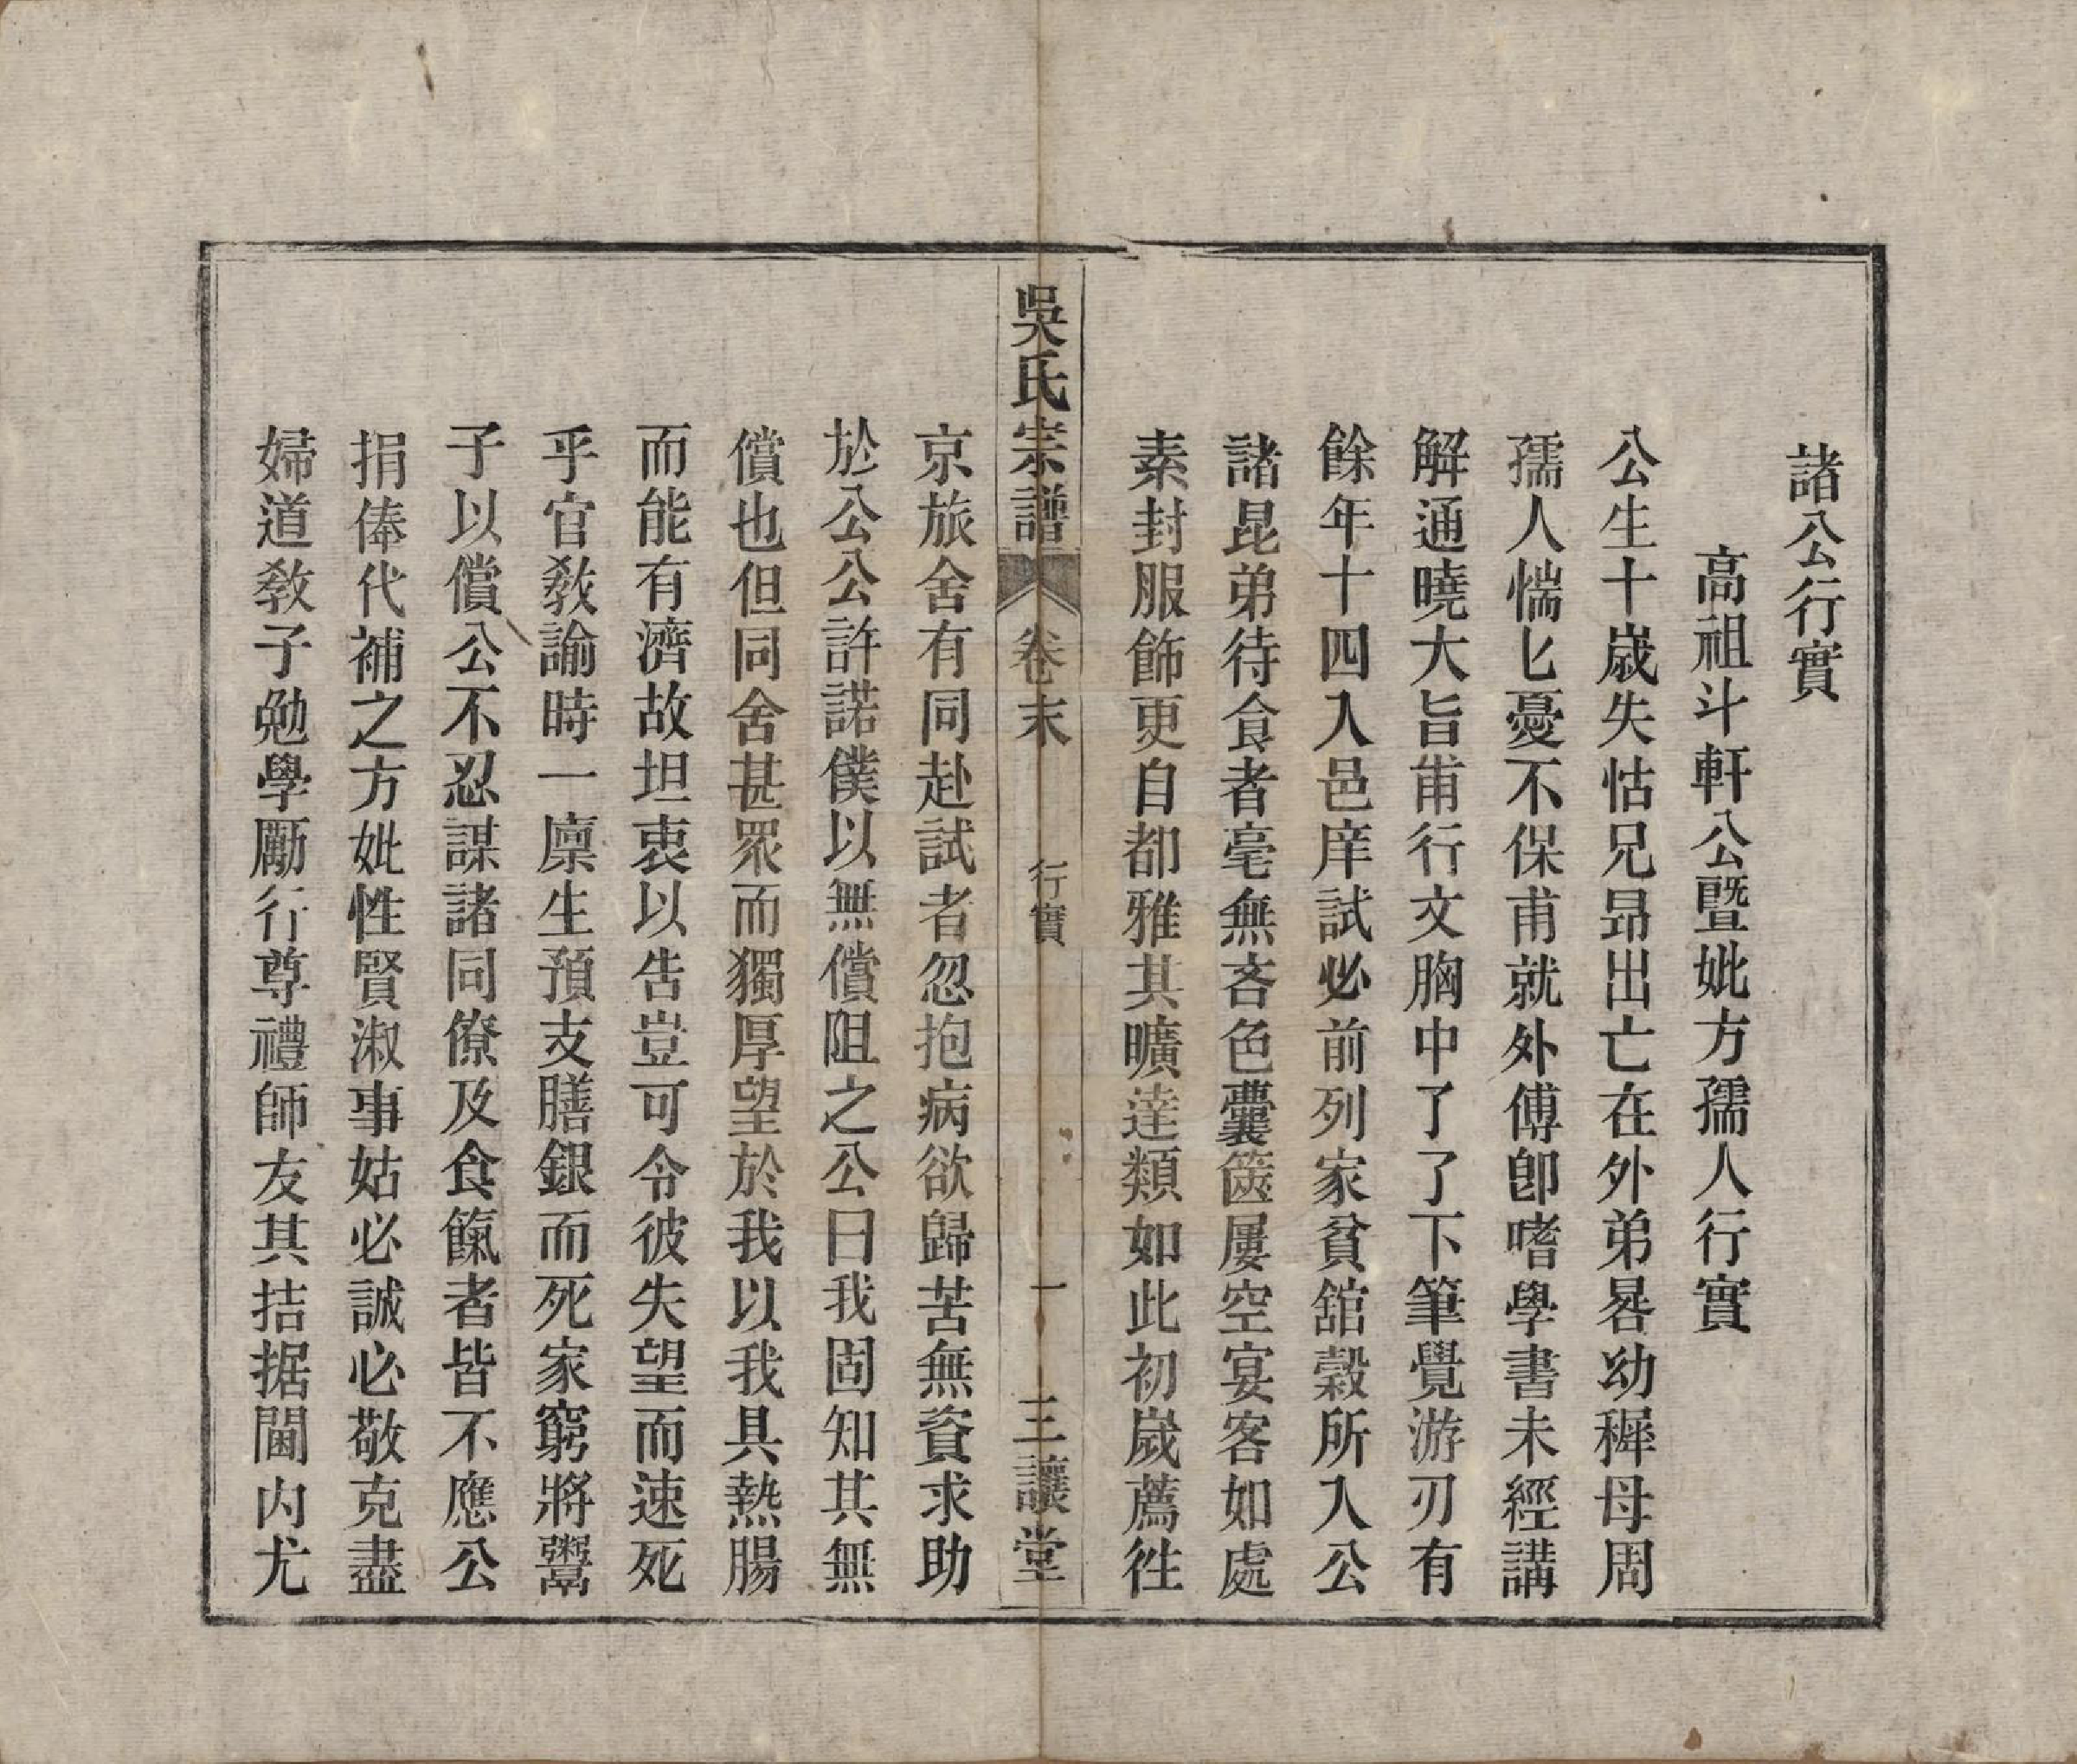 諸公行實
高祖斗軒公暨妣方孺人行實
公生十歲失怙兄昂出亡在外弟晷幼穉母周
孺人惴匕憂不保甫就外傅卽嗜學書未經講
解通曉大旨甫行文胸中了了下筆覺游刃有
餘年十四入邑庠試必前列家貧舘穀所入公
諸昆弟待食者毫無吝色囊篋屢空宴客如處
素封服飾更自都雅其曠達類如此初歲薦徃
吳氏宗譜 卷末 行實 一 三讓堂
京旅舍有同赴試者忽抱病欲歸苦無資求助
於公公許諾僕以無償阻之公曰我固知其無
償也但同舍甚眾而獨厚望於我以我具熱腸
而能有濟故坦衷以告豈可令彼失望而速死
乎官敎諭時一廩生預支膳銀而死家窮將鬻
子以償公不忍謀諸同僚及食餼者皆不應公
捐俸代補之方妣性賢淑事姑必誠必敬克盡
婦道敎子勉學勵行尊禮師友其拮据閫内尤